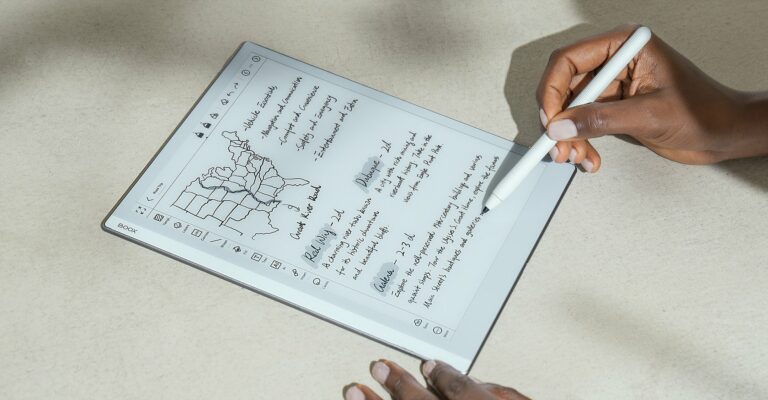 - Vehicle Essentials
- Navigation and Communication
- Comfort and Convenience
- Safety and Emergency
- Entertainment and Extra
Great River Road
Red Wing - 2d
A charming river town known
for its historic downtown
and beautiful bluffs
Dubuque - 2d
A city with rich mining and
riverboat history. Take in the
views from Eagle Point Park
Galena - 2-3d
Explore the well-preserved 19th-century buildings and various
quaint shops. Tour the Ulysses S. Grant Home, explore the famous
Main Street's boutiques and galleries
BOOX